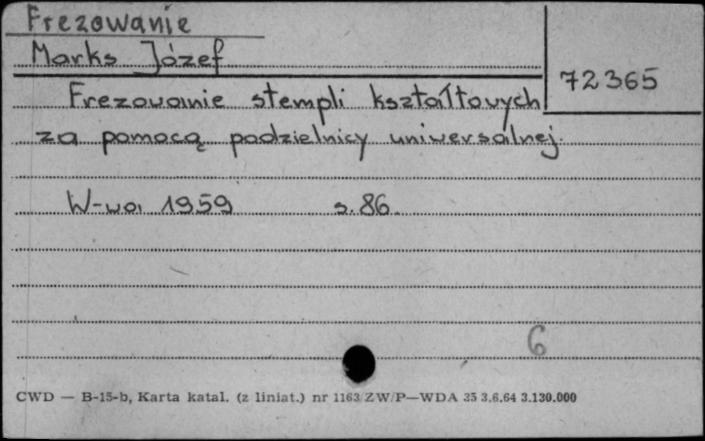 Frezowanie
Marks Józef
72365
Frezowanie stempli kształtowych
za pomocą podzielnicy uniwersalnej.
W-wa 1959 s. 86
6
CWD — B-15-b, Karta katal. (z liniat.) nr 1163 ZW/P—WDA 35 3.6.64 3.130.000